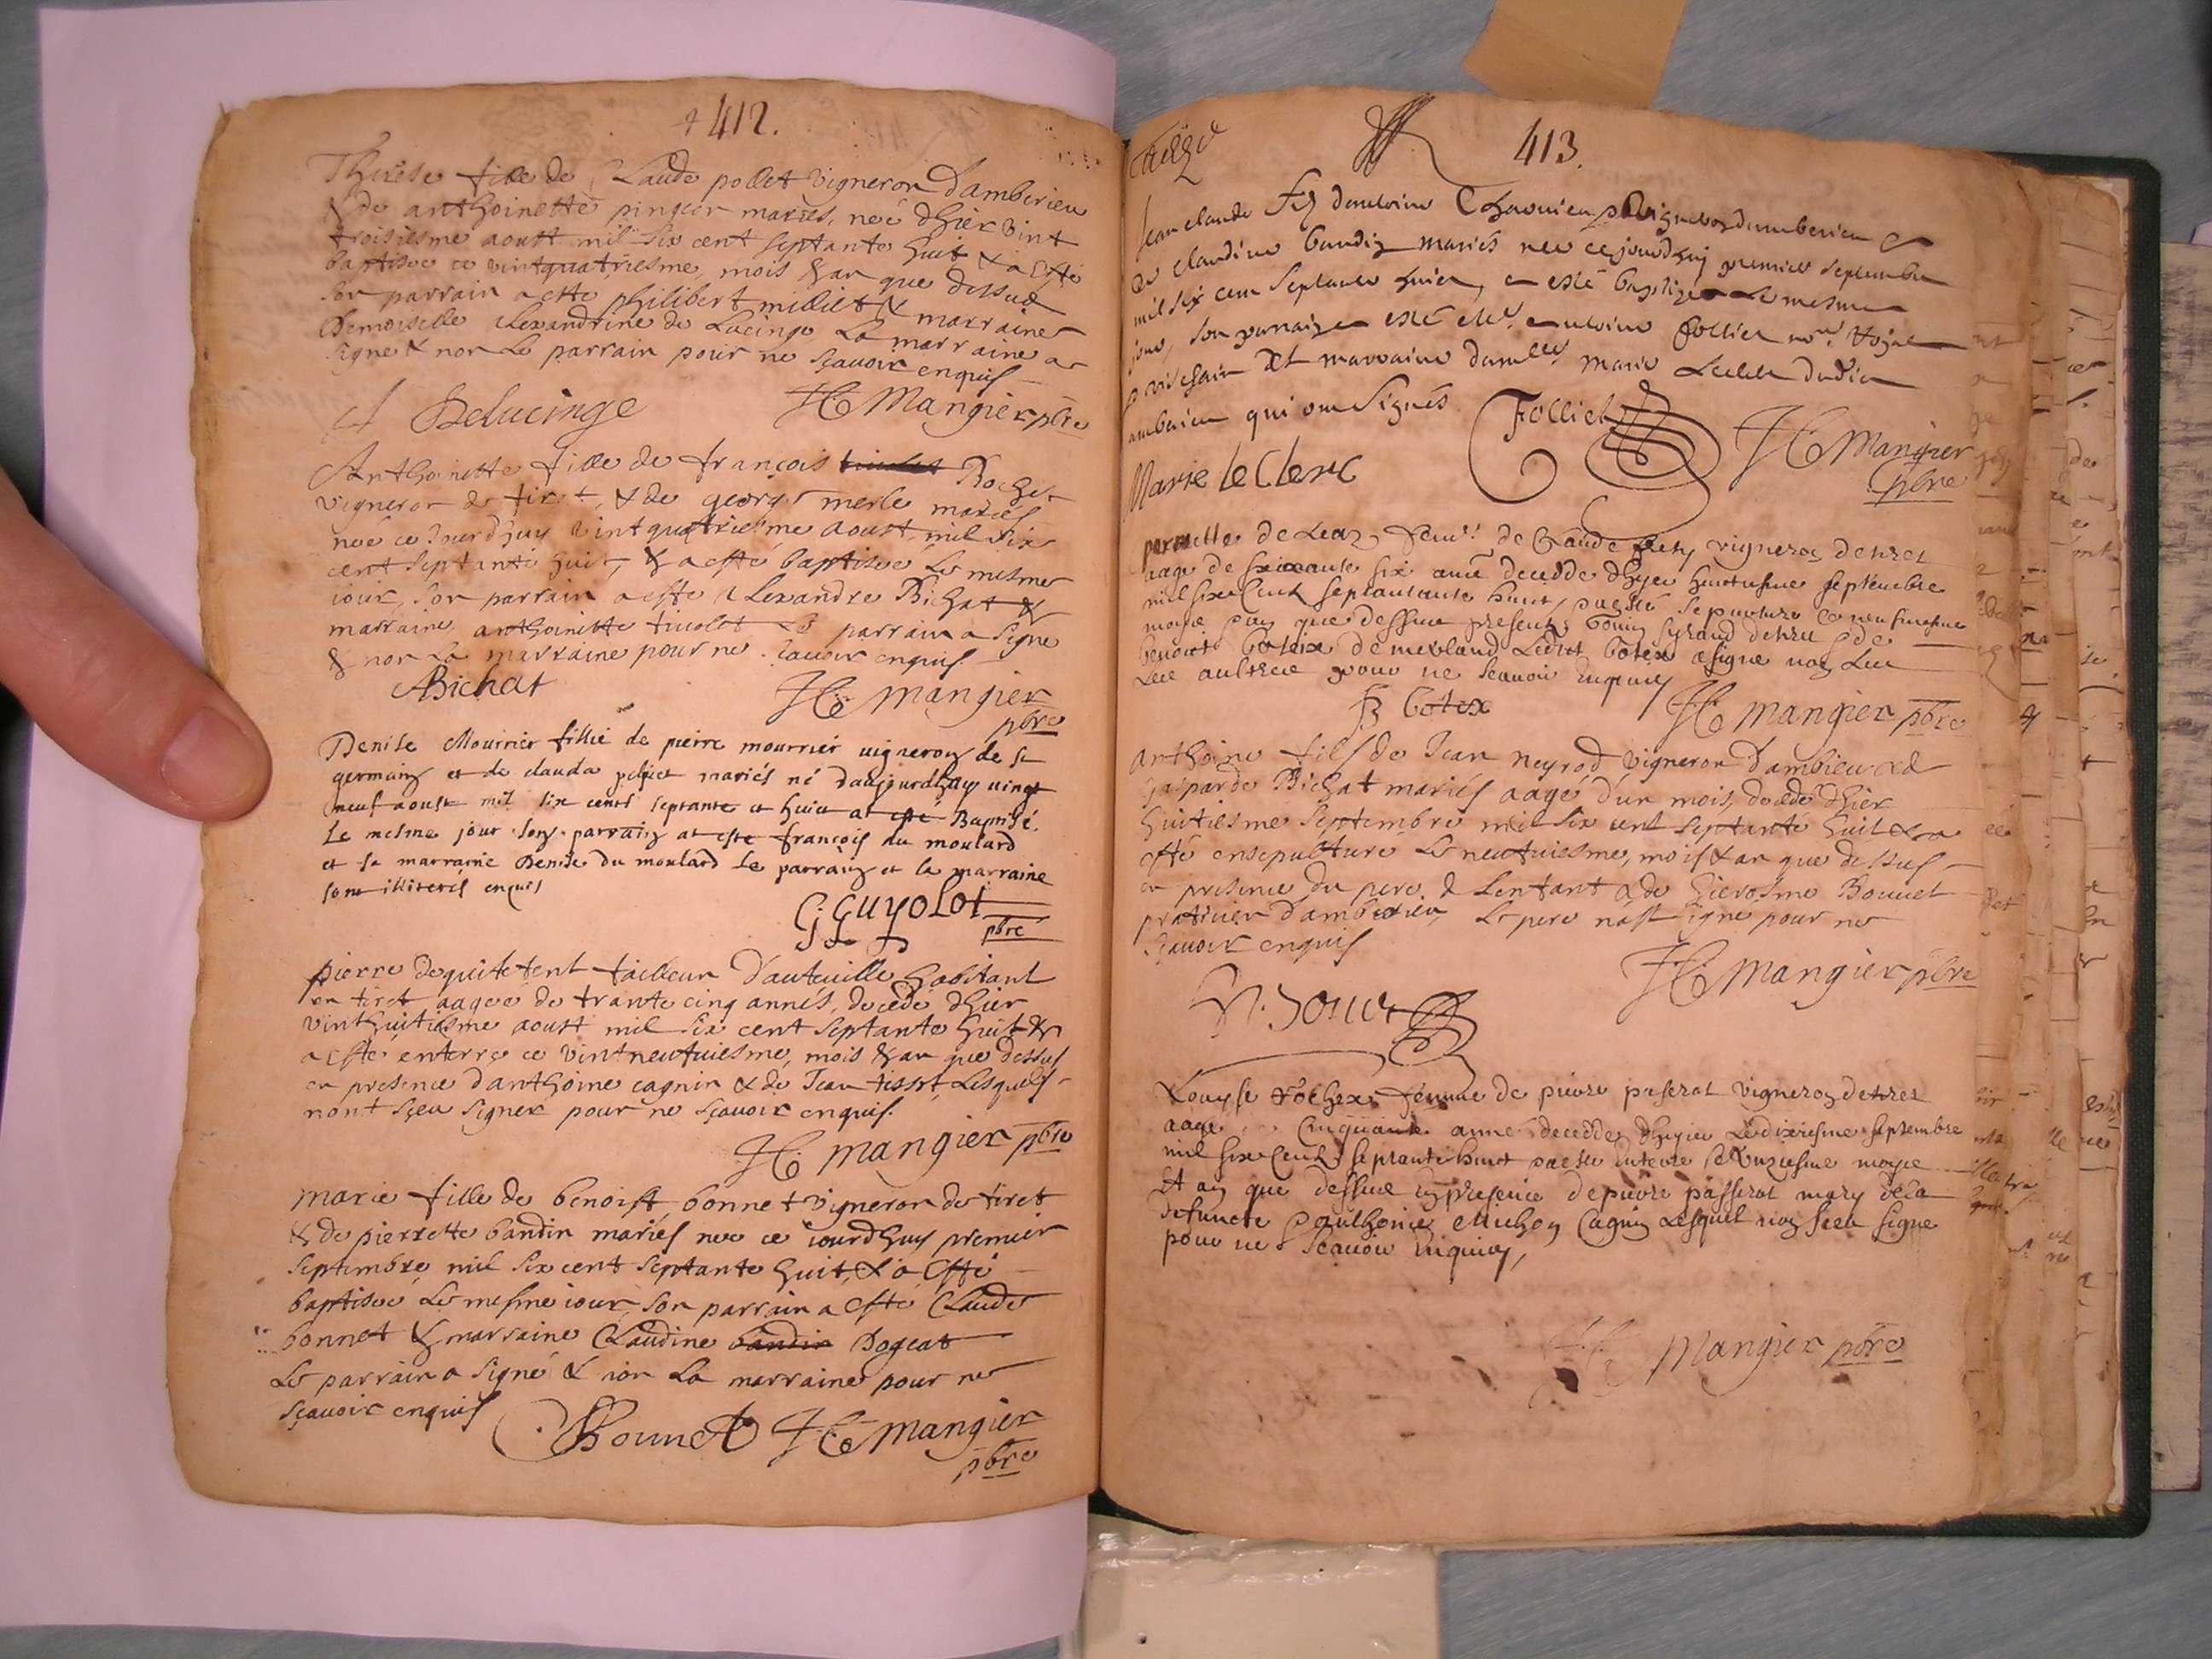 412.
Therese fille de Claude pollet vigneron d'amberieu
& de anthoinette pinguer mariés, neé d'hier vint
troisiesme aoust mil six cent septante huit & a esté
baptisee ce vintquatriesme, mois & an que dessus
son parrain a esté philibert milliet & marraine
Demoiselle Alexandrine de Lucinge La marraine a
signe & non Le parrain pour ne sçavoir enquis
A Delucinge Mangier pbre
Anthoinette fille de françois Bochet
vigneron de tiret, & de george merle mariés
neé ce jourd'huy vintquatriesme aoust mil six
cent septante huit, & a esté baptiseé Le mesme
iour, son parrain a esté Alexandre Bichat &
marraine anthoinette tuolot Le parrain a signe
& non La marraine pour ne sçavoir enquis
ABichat Mangier
pbre
Denise Mourrier fillie de pierre mourrier uigneron de st
germain et de clauda mariés né daujourdhuy uingt
neuf aoust mil six cents septante et huict at esté Baptisé
Le mesme jour son parrain at esté françois du moulard
et sa marraine Denise du moulard le parrain et la marraine
sont illiterés enquis
G Guyolot
pbré
pierre dequitetent tailleur d'auteuille habitant
en tiret aagee de trante cinq annés, decedé d'hier
vinthuitiesme aoust mil six cent septante huit &
a esté enterre ce vintneufuiesme, mois & an que dessus
en presence d'anthoine cagnin & de Jean tissot, Lesquels
n'ont sçeu signer pour ne sçavoir enquis.
mangier pbre
marie fille de benoist bonnet vigneron de tiret
& de pierrette bandin mariés nee ce iourd'huy premier
septembre mil six cent septante huit, & a esté
baptiseé Le mesme iour, son parrain a esté Claude
bonnet & marraine Claudine bandin Dogeat
Le parrain a signé & non La marraine pour ne
sçauoir enquis
Bonnet Mangier
pbre
413.
Jean claude fiz dantoine vigneron damberieu &
de claudine bandin mariés nee cejourdhuy premier septembre
mil six cent septante huict, a esté baptize Le mesme
jour, son parrain a esté antoine follier Royal
et marraine marie Leclerc dudit
amberieu qui ont signés
Folliet Mangier
pbre
Marie leClerc
pernette de de Claude vigneron detiret
aage de soixante six anné decedde dhyer huictiesme septembre
mil six Cent septantante huict, sepulture Ce neufuiesme
moys que dessus present
benoict botex Ledict botex a signe non Les
aultres pour ne scauoir enquis
B botex mangier pbre
anthoine fils de Jean neyrod vigneron d'ambieu & d
gasparde Bichat mariés aagé d'un mois, decedé d'hier
huitiesme septembre mil six cent septante huit & a
esté ensepulturé Le neufuiesme, mois & an que dessus
en presence du pere d Lenfant & de hierosme Bonnet
praticien d'amberieu, Le pere n'ast signe pour ne
sçauoir enquis
mangier pbre
Louyse rochex femme de pierre paserat vigneron detiret
aage Cinquante anné decedde dhyer Le dixiesme septembre
mil six Cent septante huict enterré Le unziesme moys
Et an que dessus en presence de pierre passerat mary de la
defuncte Michon Cagnin Lesquel non sceu signe
pour ne scauoir enquis,
mangier pbre